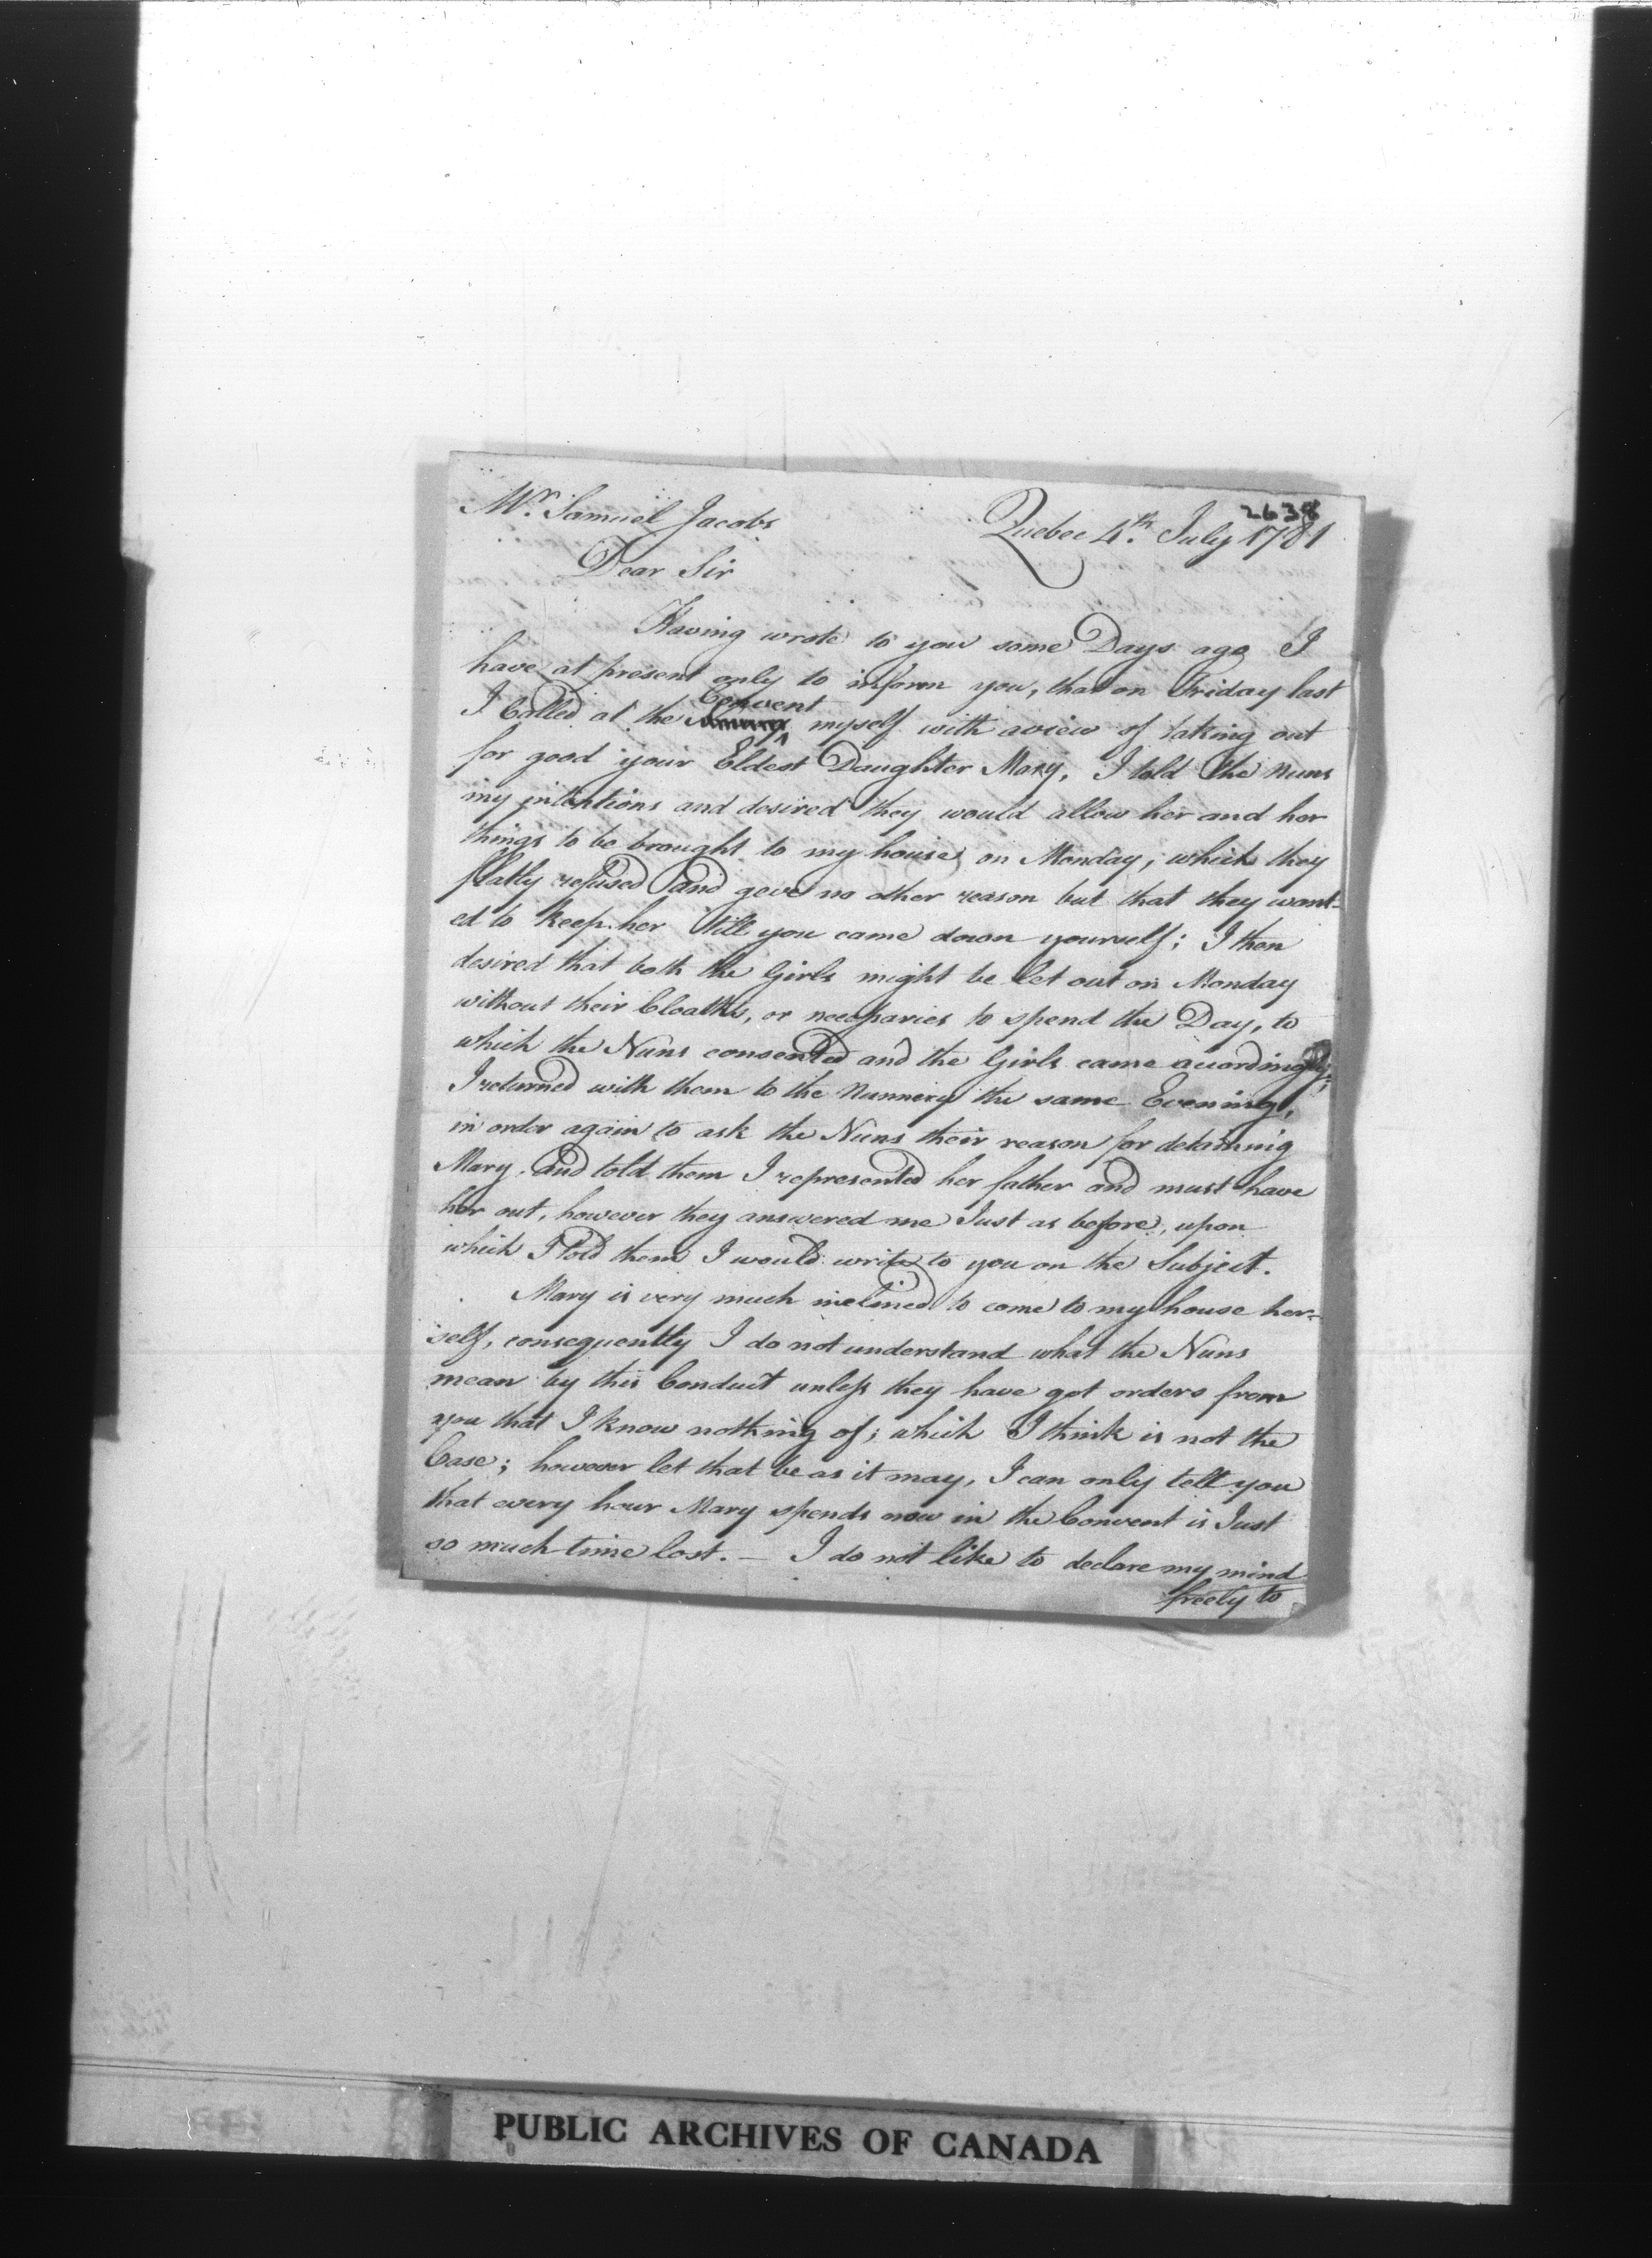 2638
Mr. Samuel Jacobs Quebec 4th. July 1781
Dear Sir
Having wrote to you some Days ago I
have at present only to inform you, that on Friday last
Convent
I Called at the myself with a view of taking out
for good your Eldest Daughter Mary, I told the Nuns
my intentions and desired they would allow her and her
things to be brought to my house on Monday; which they
flatly refused and gave no other reason but that they want-
ed to keep her till you came down yourself; I then
desired that both the Girls might be let out on Monday
without their Cloaths, or necessaries to spend the Day, to
which the Nuns consented and the Girls came accordingly,
I returned with them to the Nunnery the same Evening,
in order again to ask the Nuns their reason for detaining
Mary, and told them I represented her father and must have
her out, however they answered me Just as before, upon
which I told them I would write to you on the Subject.
Mary is very much inclined to come to my house her-
self, consequently I do not understand what the Nuns
mean by this Conduct unless they have got orders from
you that I know nothing of; which I think is not the
Case; however let that be as it may, I can only tell you
that every hour Mary spends now in the Convent is Just
so much time lost. — I do not like to declare my mind
freely to
PUBLIC ARCHIVES OF CANADA